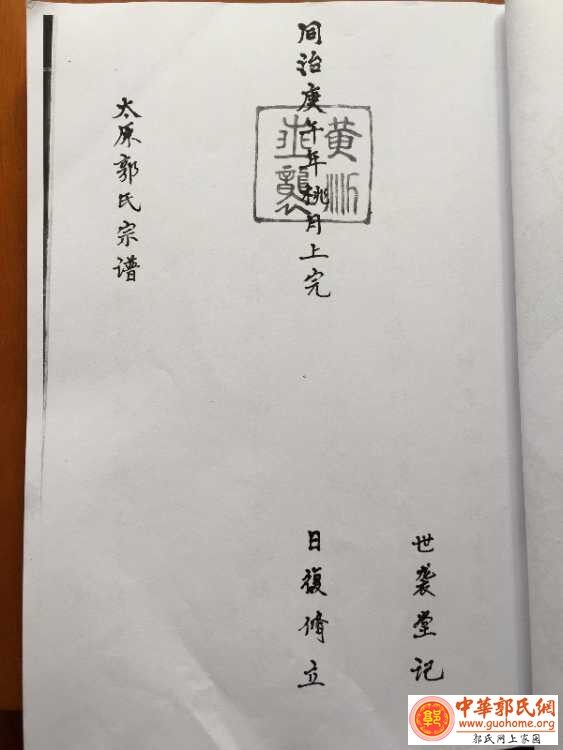 世袭堂记
同治庚午年桃月上完
日復脩立
太原郭氏宗谱
世襲
郭
中華郭氏網
www.guohome.org
郭氏网上家园